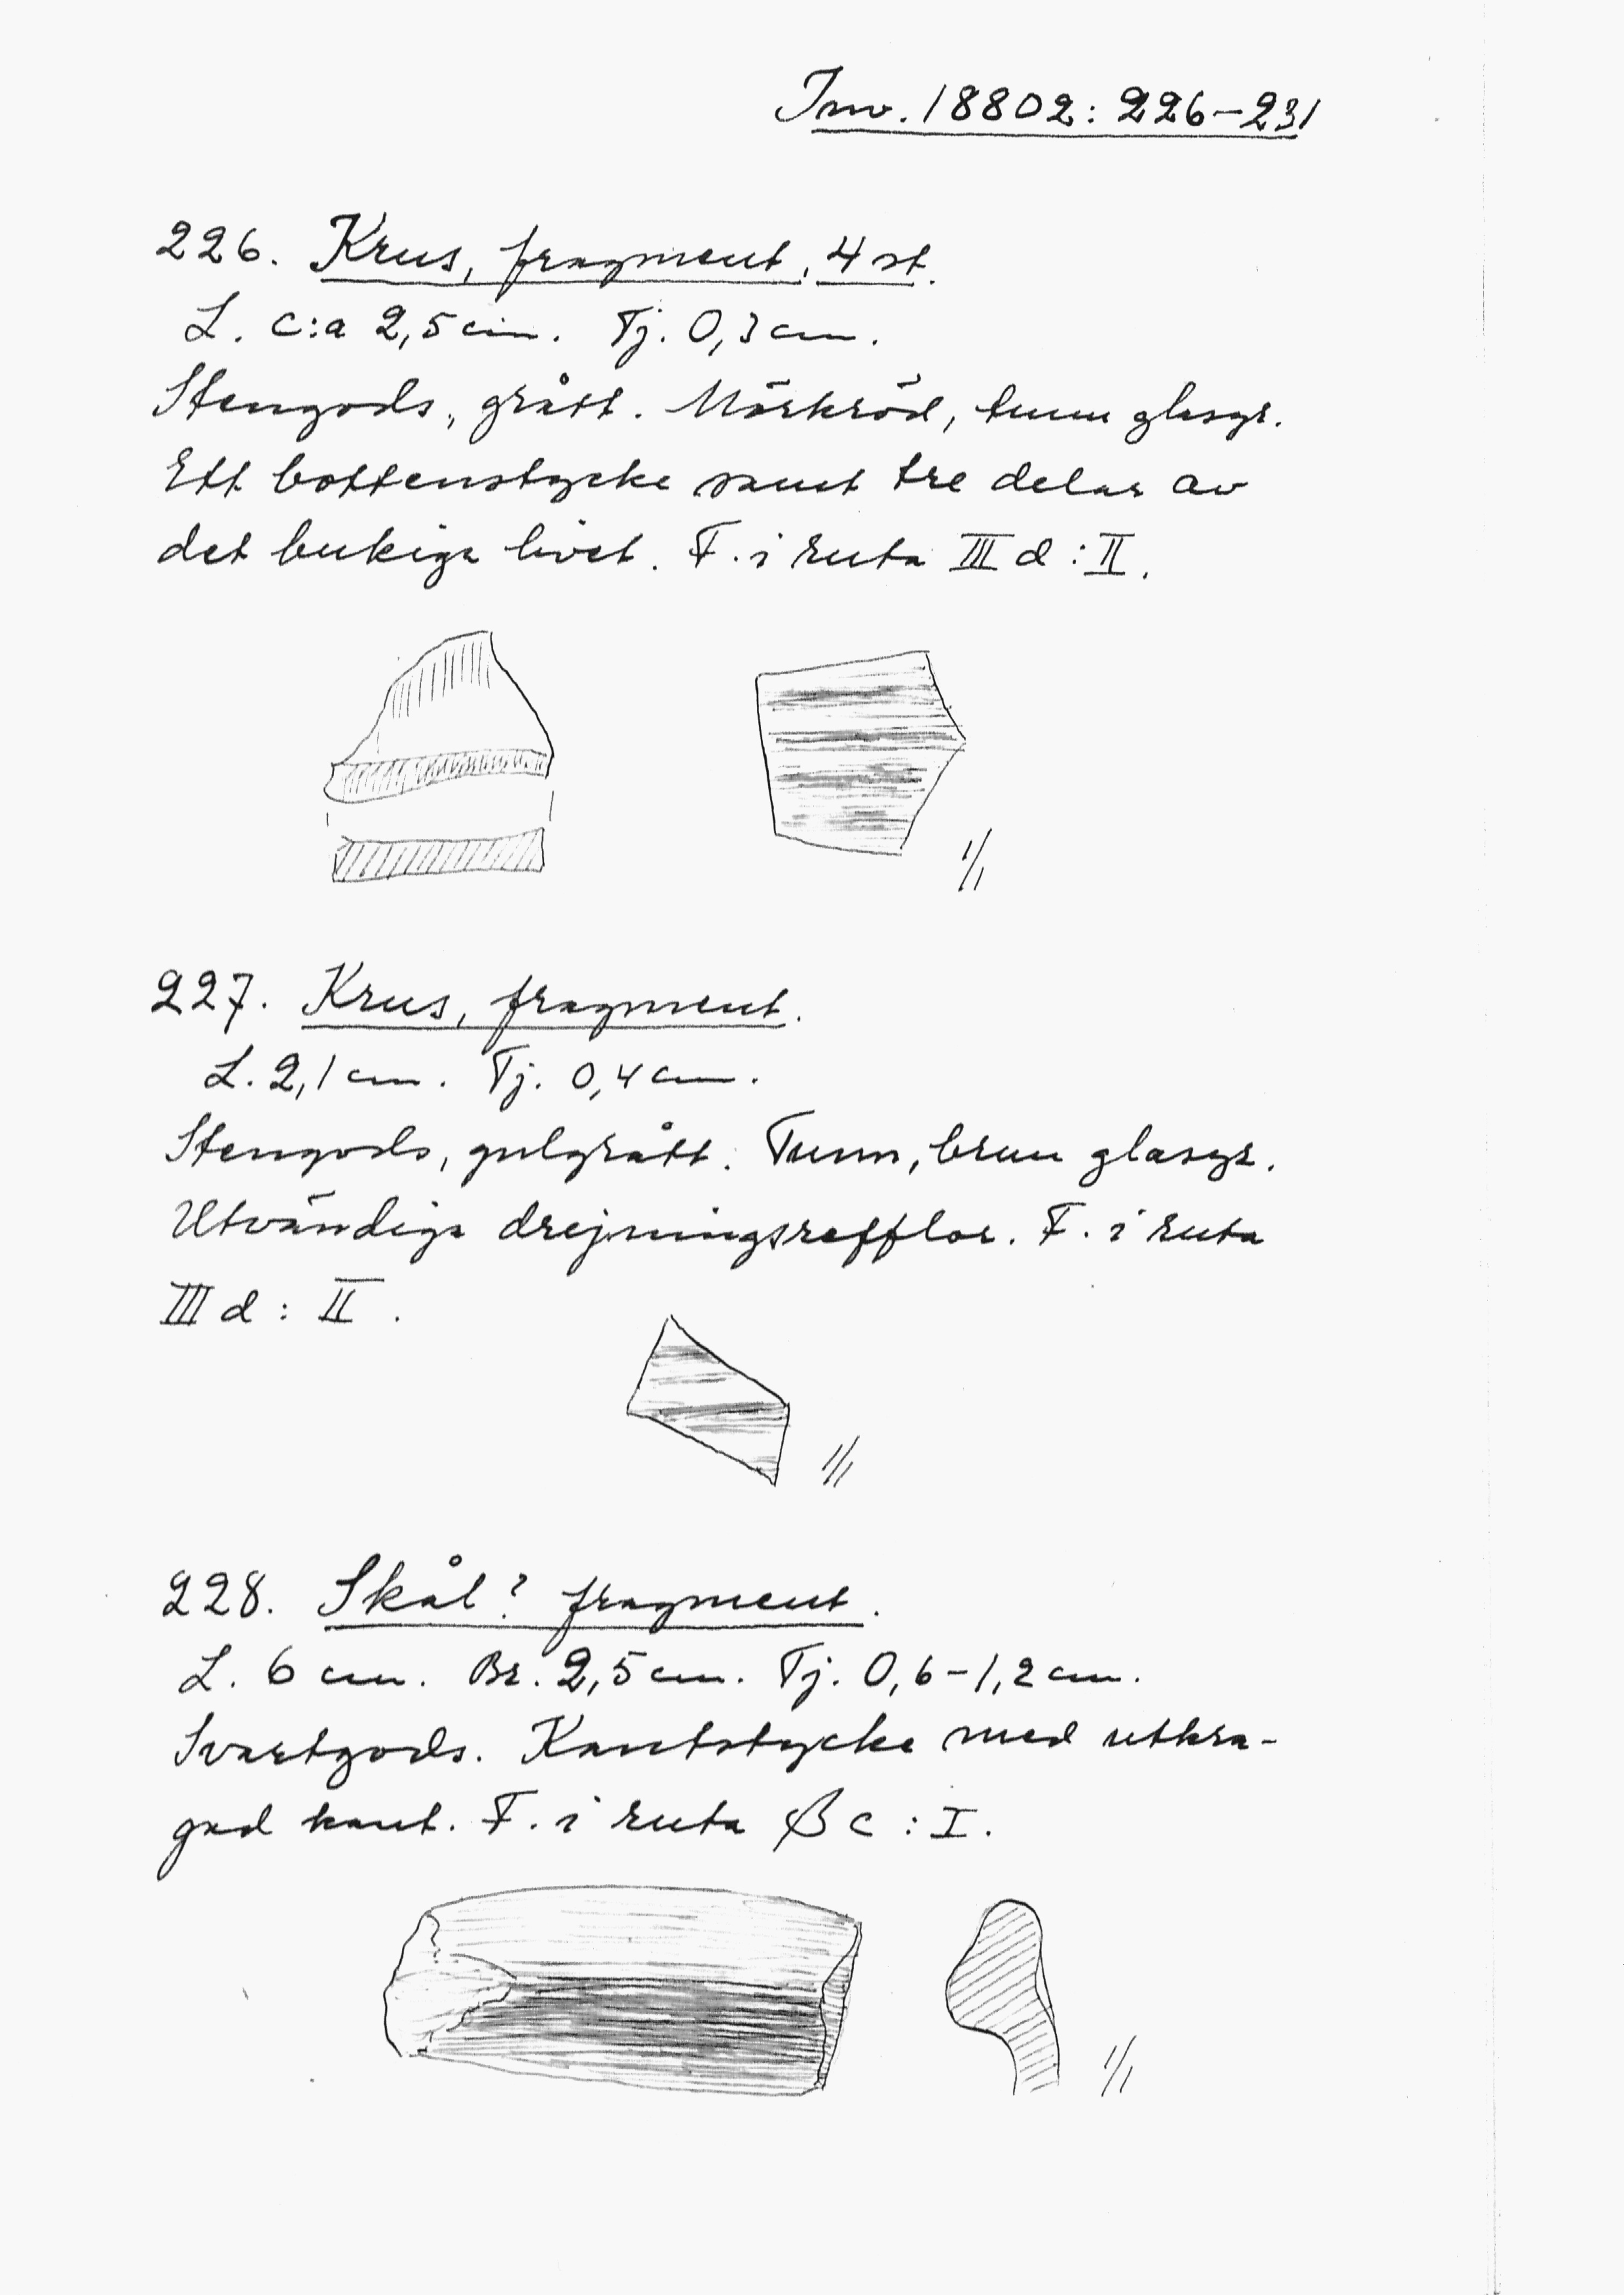 Inv. 18802: 226-231
226. Krus, fragment, 4 st.
L. c:a 2,5 cm. Tj. 0,3 cm.
Stengods, grått. Mörkröd, tunn glasyr.
Ett bottenstycke samt tre delar av
det bukiga livet. F. i ruta III d : II.
1/1
227. Krus, fragment.
L. 2,1 cm. Tj. 0,4 cm.
Stengods, gulgrått. Tunn, brun glasyr.
Utvändiga drejningsrefflor. F. i ruta
III d : II.
1/1
228. Skål? fragment.
L. 6 cm. Br. 2,5 cm. Tj. 0,6-1,2 cm.
Svartgods. Kantstycke med utkra-
gad kant. F. i ruta β c : I.
1/1